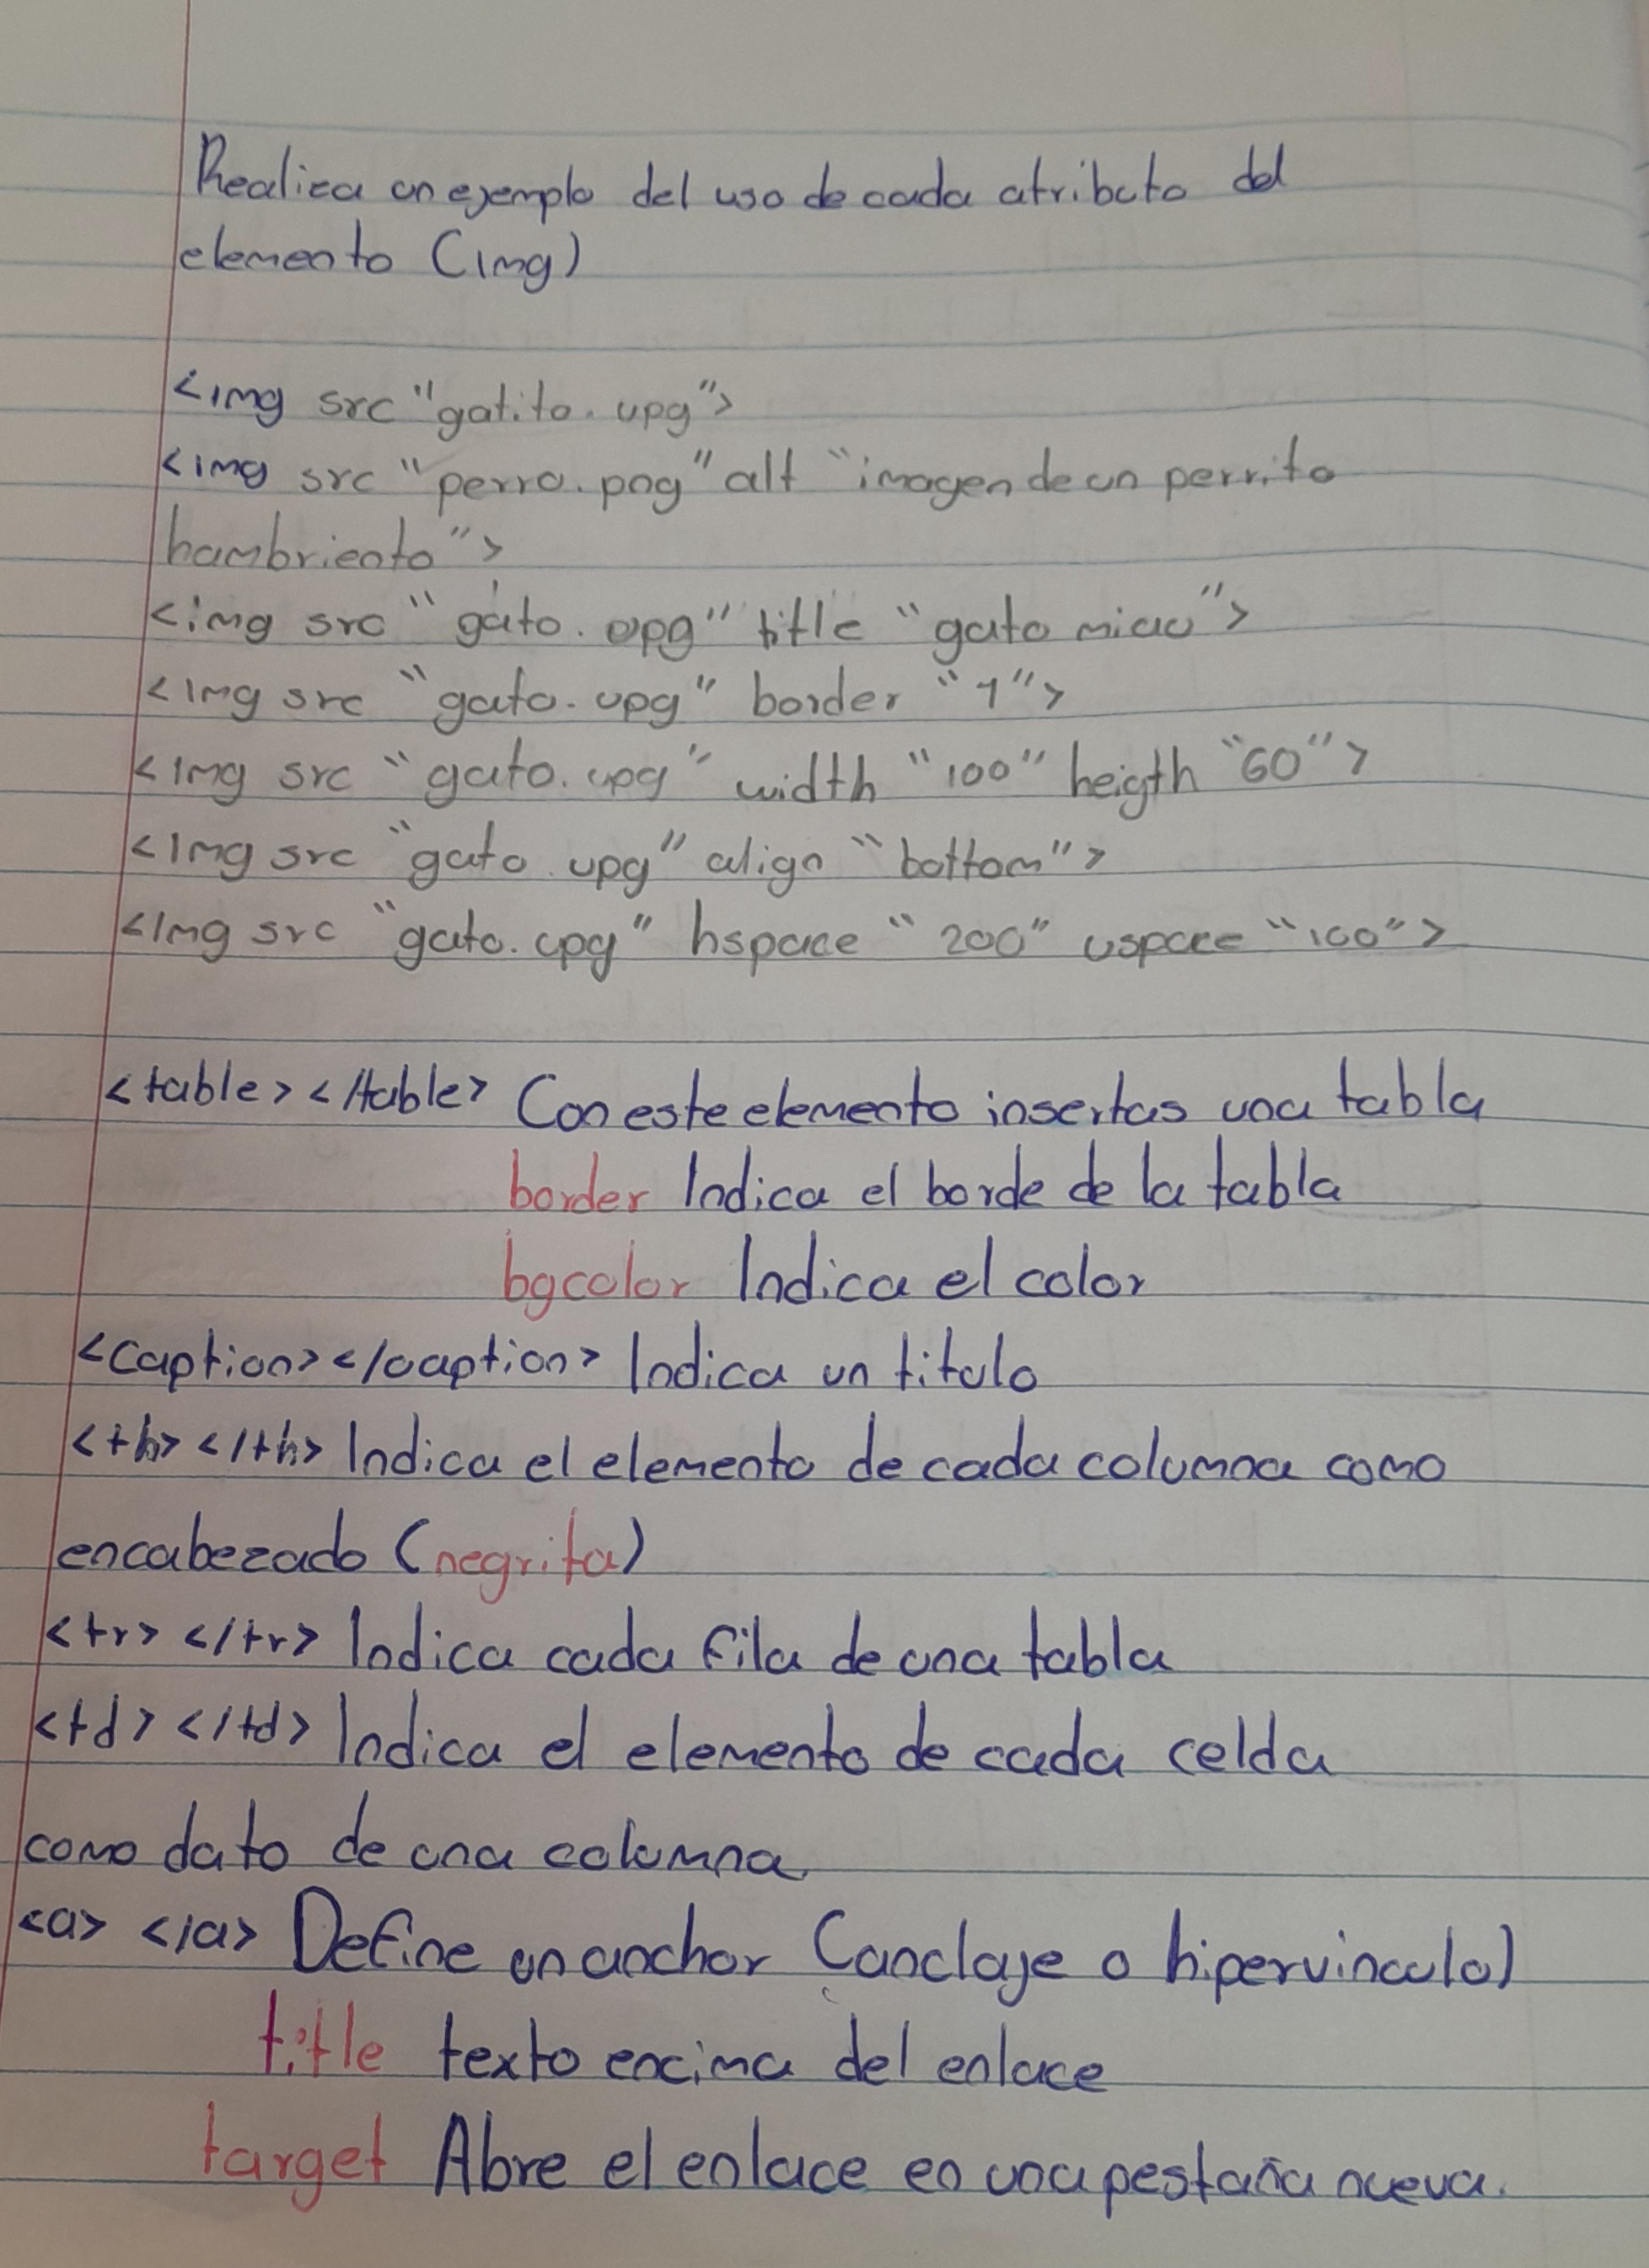 Realiza un ejemplo del uso de cada atributo del
elemento (img)
<img src "gatito.upg">
<img src "perro.png" alt "imagen de un perrito
hambriento">
<img src "gato.upg" title "gato miau">
<img src "gato.upg" border "1">
<img src "gato.upg" width "100" heigth "60">
<img src "gato.upg" align "bottom">
<img src "gato.upg" hspace "200" vspace "100">
<table></table> Con este elemento insertas una tabla
border Indica el borde de la tabla
bgcolor Indica el color
<caption></caption> Indica un titulo
<th></th> Indica el elemento de cada columna como
encabezado (negrita)
<tr></tr> Indica cada fila de una tabla
<td></td> Indica el elemento de cada celda
como dato de una columna
<a></a> Define un anchor (anclaje o hipervinculo)
title texto encima del enlace
target Abre el enlace en una pestaña nueva.